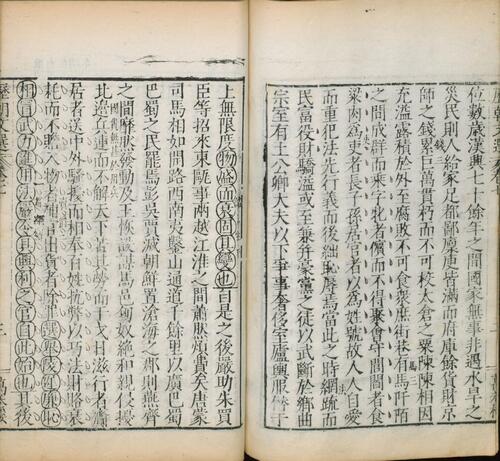 位數歲漢興七十餘年之間國家無事非遇水旱之
災民則人給家足都鄙廩庾皆滿而府庫餘貨財京
師之錢累巨萬貫朽而不可校太倉之粟陳陳相因
充溢露積於外至腐敗不可食衆庶街巷有馬阡陌
之間成群而乘字牝者儐而不得聚會守閭閻者食
粱肉為吏者長子孫居官者以為姓號故人人自愛
而重犯法先行義而後絀恥辱焉當此之時網疏而
民富役財驕溢或至兼并豪黨之徒以武斷於鄉曲
宗室有土公卿大夫以下爭事奢侈室廬輿服僭于
上無限度物盛而衰固其變也自是之後嚴助朱買
臣等招來東甌事兩越江淮之間蕭然煩費矣唐蒙
司馬相如開路西南夷鑿山通道千餘里以廣巴蜀
巴蜀之民罷焉彭吳賈滅朝鮮置滄海之郡則燕齊
之間靡然發動及王恢設謀馬邑匈奴絕和親侵擾
北邊兵連而不解天下苦其勞而干戈日滋行者齎
居者送中外騷擾而相奉百姓抏弊以巧法財賂衰
耗而不贍入物者補官出貨者除罪選舉陵遲廉恥
相冒武力進用法嚴令具興利之官自此始也其後